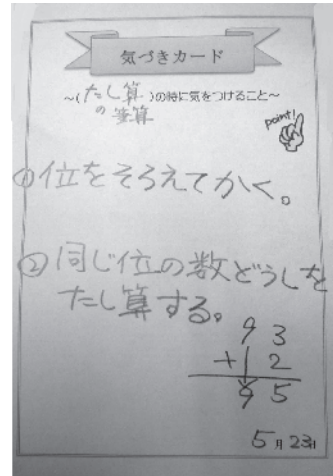 気づきカード
～(たし算の筆算)の時に気をつけること～
point!
①位をそろえてかく。
②同じ位の数どうしを
たし算する。
93
+12
95
5月23日